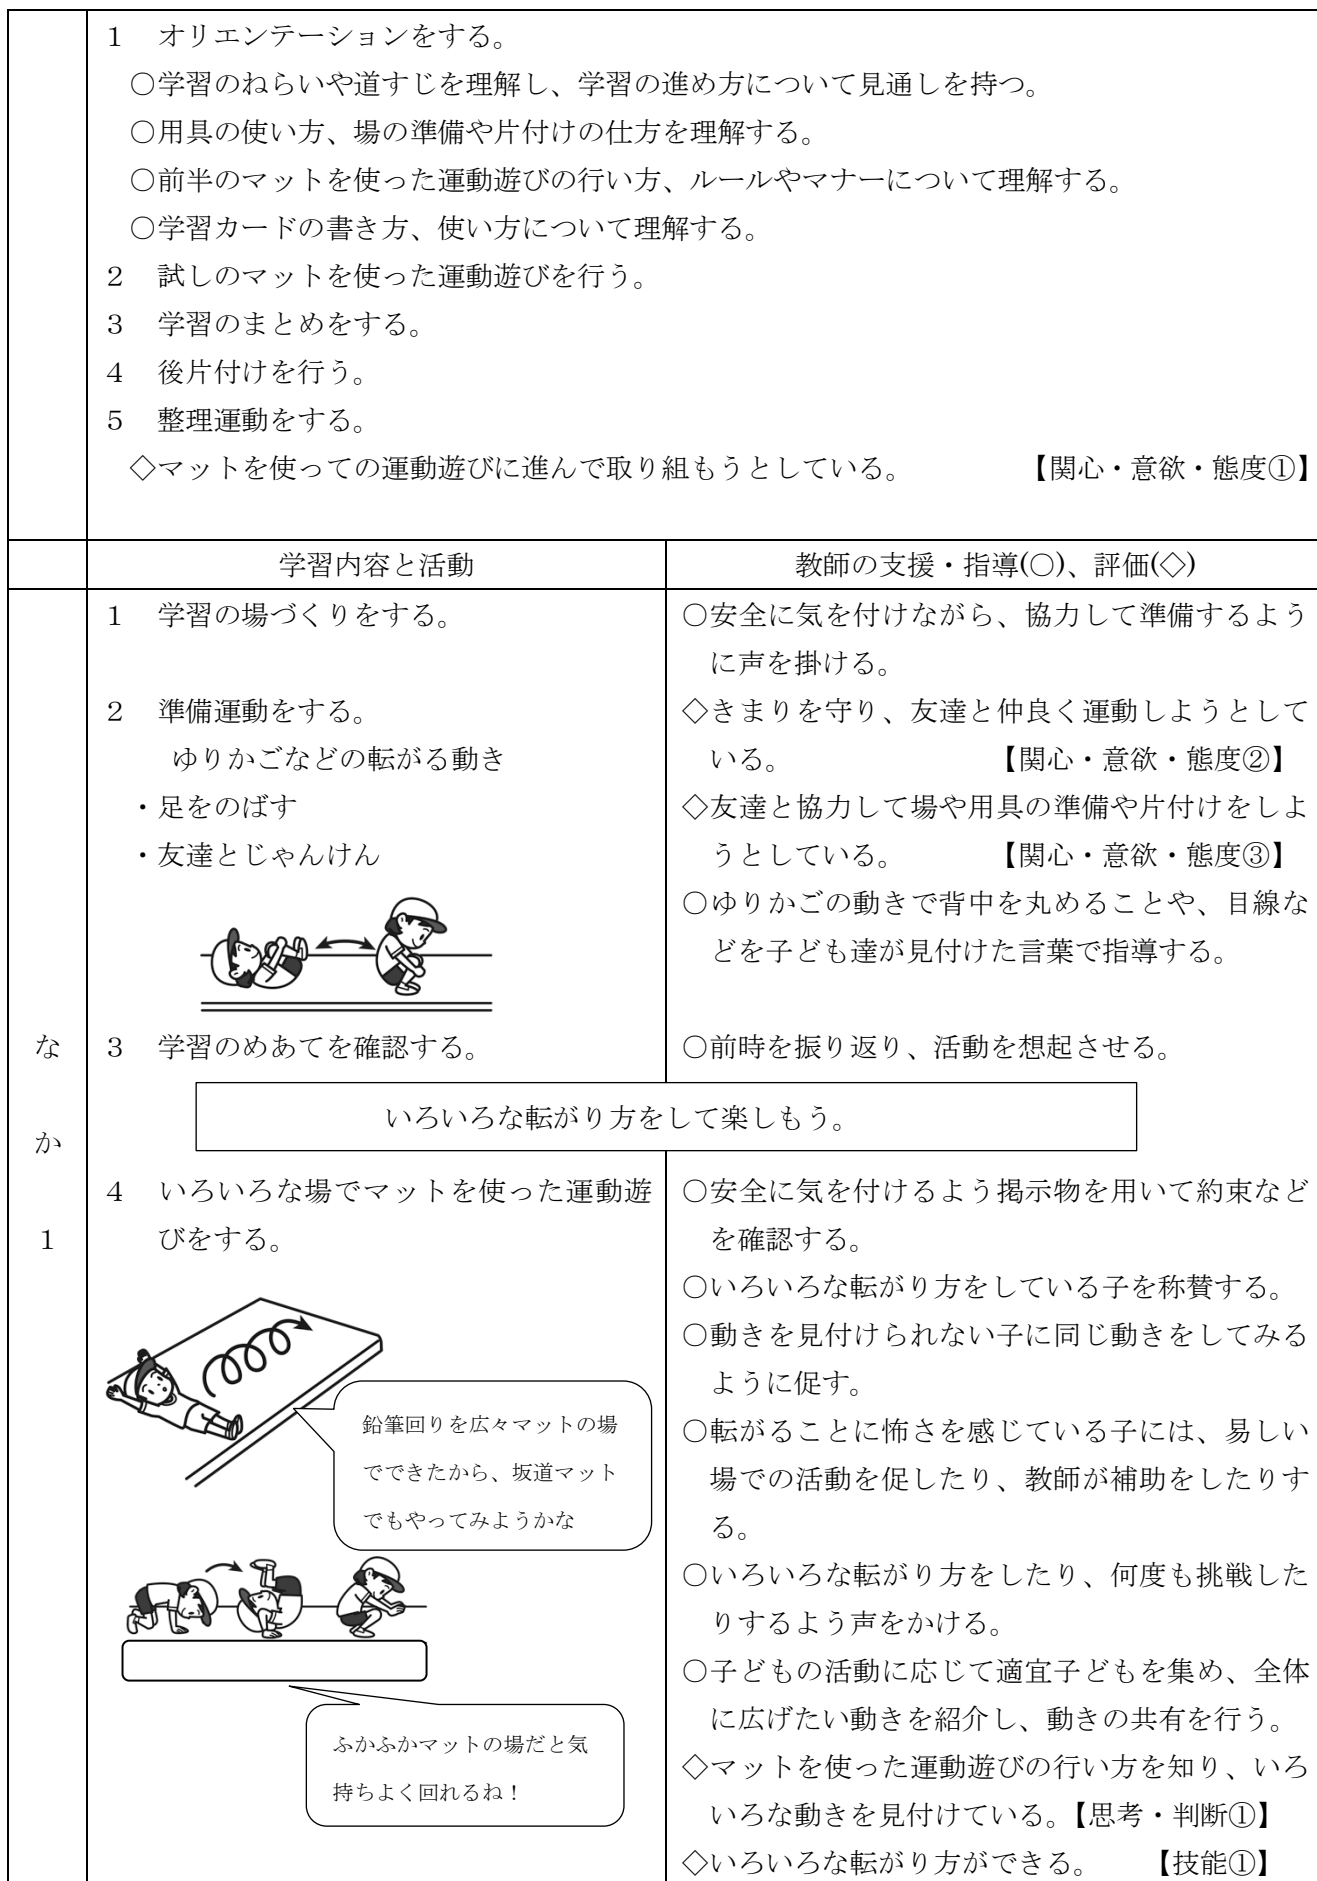 1 オリエンテーションをする。
○学習のねらいや道すじを理解し、学習の進め方について見通しを持つ。
○用具の使い方、場の準備や片付けの仕方を理解する。
○前半のマットを使った運動遊びの行い方、ルールやマナーについて理解する。
○学習カードの書き方、使い方について理解する。
2 試しのマットを使った運動遊びを行う。
3 学習のまとめをする。
4 後片付けを行う。
5 整理運動をする。
◇マットを使っての運動遊びに進んで取り組もうとしている。 【関心・意欲・態度①】
学習内容と活動
教師の支援・指導(○)、評価(◇)
なか1
1 学習の場づくりをする。
2 準備運動をする。
ゆりかごなどの転がる動き
・足をのばす
・友達とじゃんけん
○安全に気を付けながら、協力して準備するよう
に声を掛ける。
◇きまりを守り、友達と仲良く運動しようとして
いる。 【関心・意欲・態度②】
◇友達と協力して場や用具の準備や片付けをしよ
うとしている。 【関心・意欲・態度③】
○ゆりかごの動きで背中を丸めることや、目線な
どを子ども達が見付けた言葉で指導する。
3 学習のめあてを確認する。
○前時を振り返り、活動を想起させる。
いろいろな転がり方をして楽しもう。
4 いろいろな場でマットを使った運動遊
びをする。
鉛筆回りを広々マットの場
でできたから、坂道マット
でもやってみようかな
ふかふかマットの場だと気
持ちよく回れるね！
○安全に気を付けるよう掲示物を用いて約束など
を確認する。
○いろいろな転がり方をしている子を称賛する。
○動きを見付けられない子に同じ動きをしてみる
ように促す。
○転がることに怖さを感じている子には、易しい
場での活動を促したり、教師が補助をしたりす
る。
○いろいろな転がり方をしたり、何度も挑戦した
りするよう声をかける。
○子どもの活動に応じて適宜子どもを集め、全体
に広げたい動きを紹介し、動きの共有を行う。
◇マットを使った運動遊びの行い方を知り、いろ
いろな動きを見付けている。【思考・判断①】
◇いろいろな転がり方ができる。 【技能①】